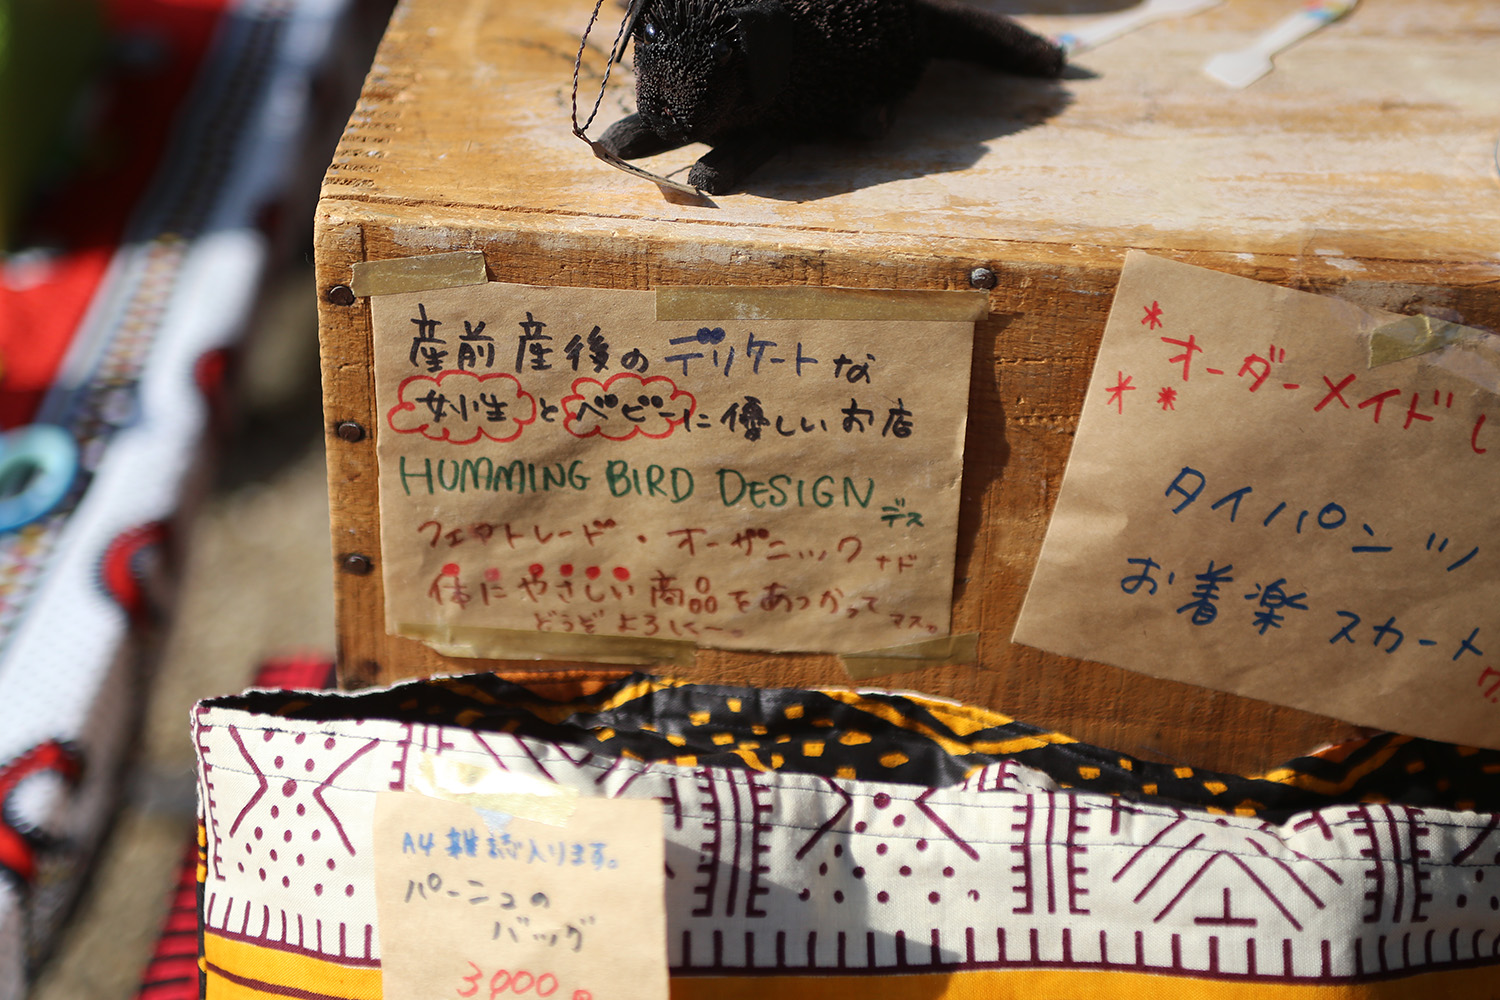 産前産後のデリケートな
女性とベビーに優しいお店
HUMMING BIRD DESIGN デス
フェアトレード・オーガニックナド
体にやさしい商品をあつかってマス。
どうぞよろしくー。
*オーダーメイドし
タイパンツ
お着楽スカート
A4雑誌入ります。
パーニュの
バッグ
3900